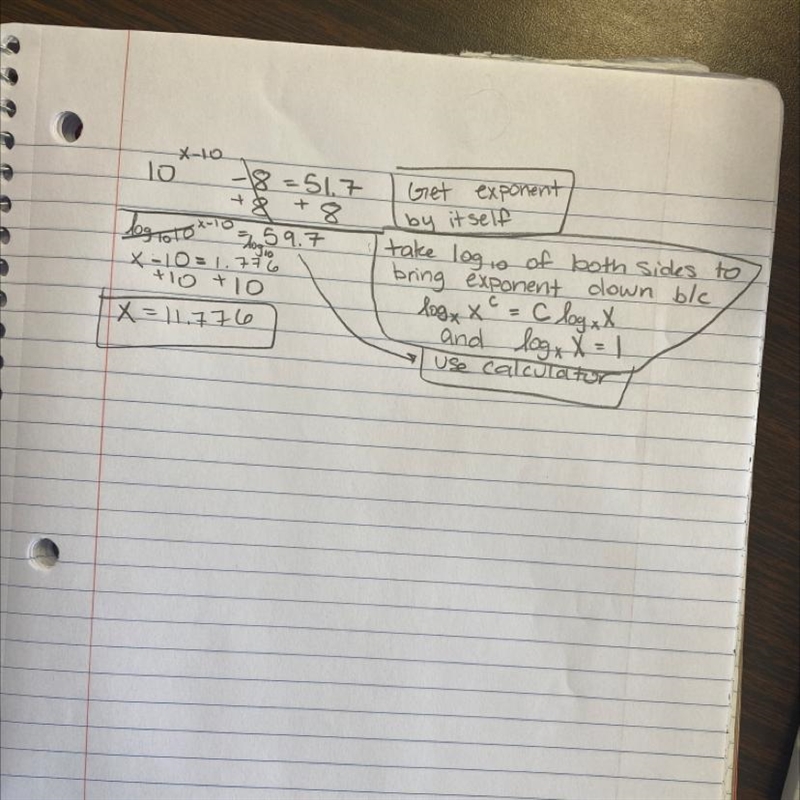 10^(x-10) - 8 = 51.7
+8 +8
log₁₀10^(x-10) = log₁₀ 59.7
x - 10 = 1.776
+10 +10
x = 11.776
Get exponent
by itself
take log₁₀ of both sides to
bring exponent down b/c
logₓ x^c = c logₓ x
and logₓ x = 1
use calculator